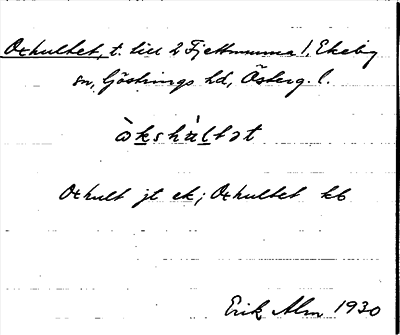 Oxhultet, t. till 2 Fjettmunna 1, Ekeby
sn, Göstrings hd, Österg. l.
ò̀kshùltət
Oxhult jt ek; Oxhultet kb
Erik Alm 1930